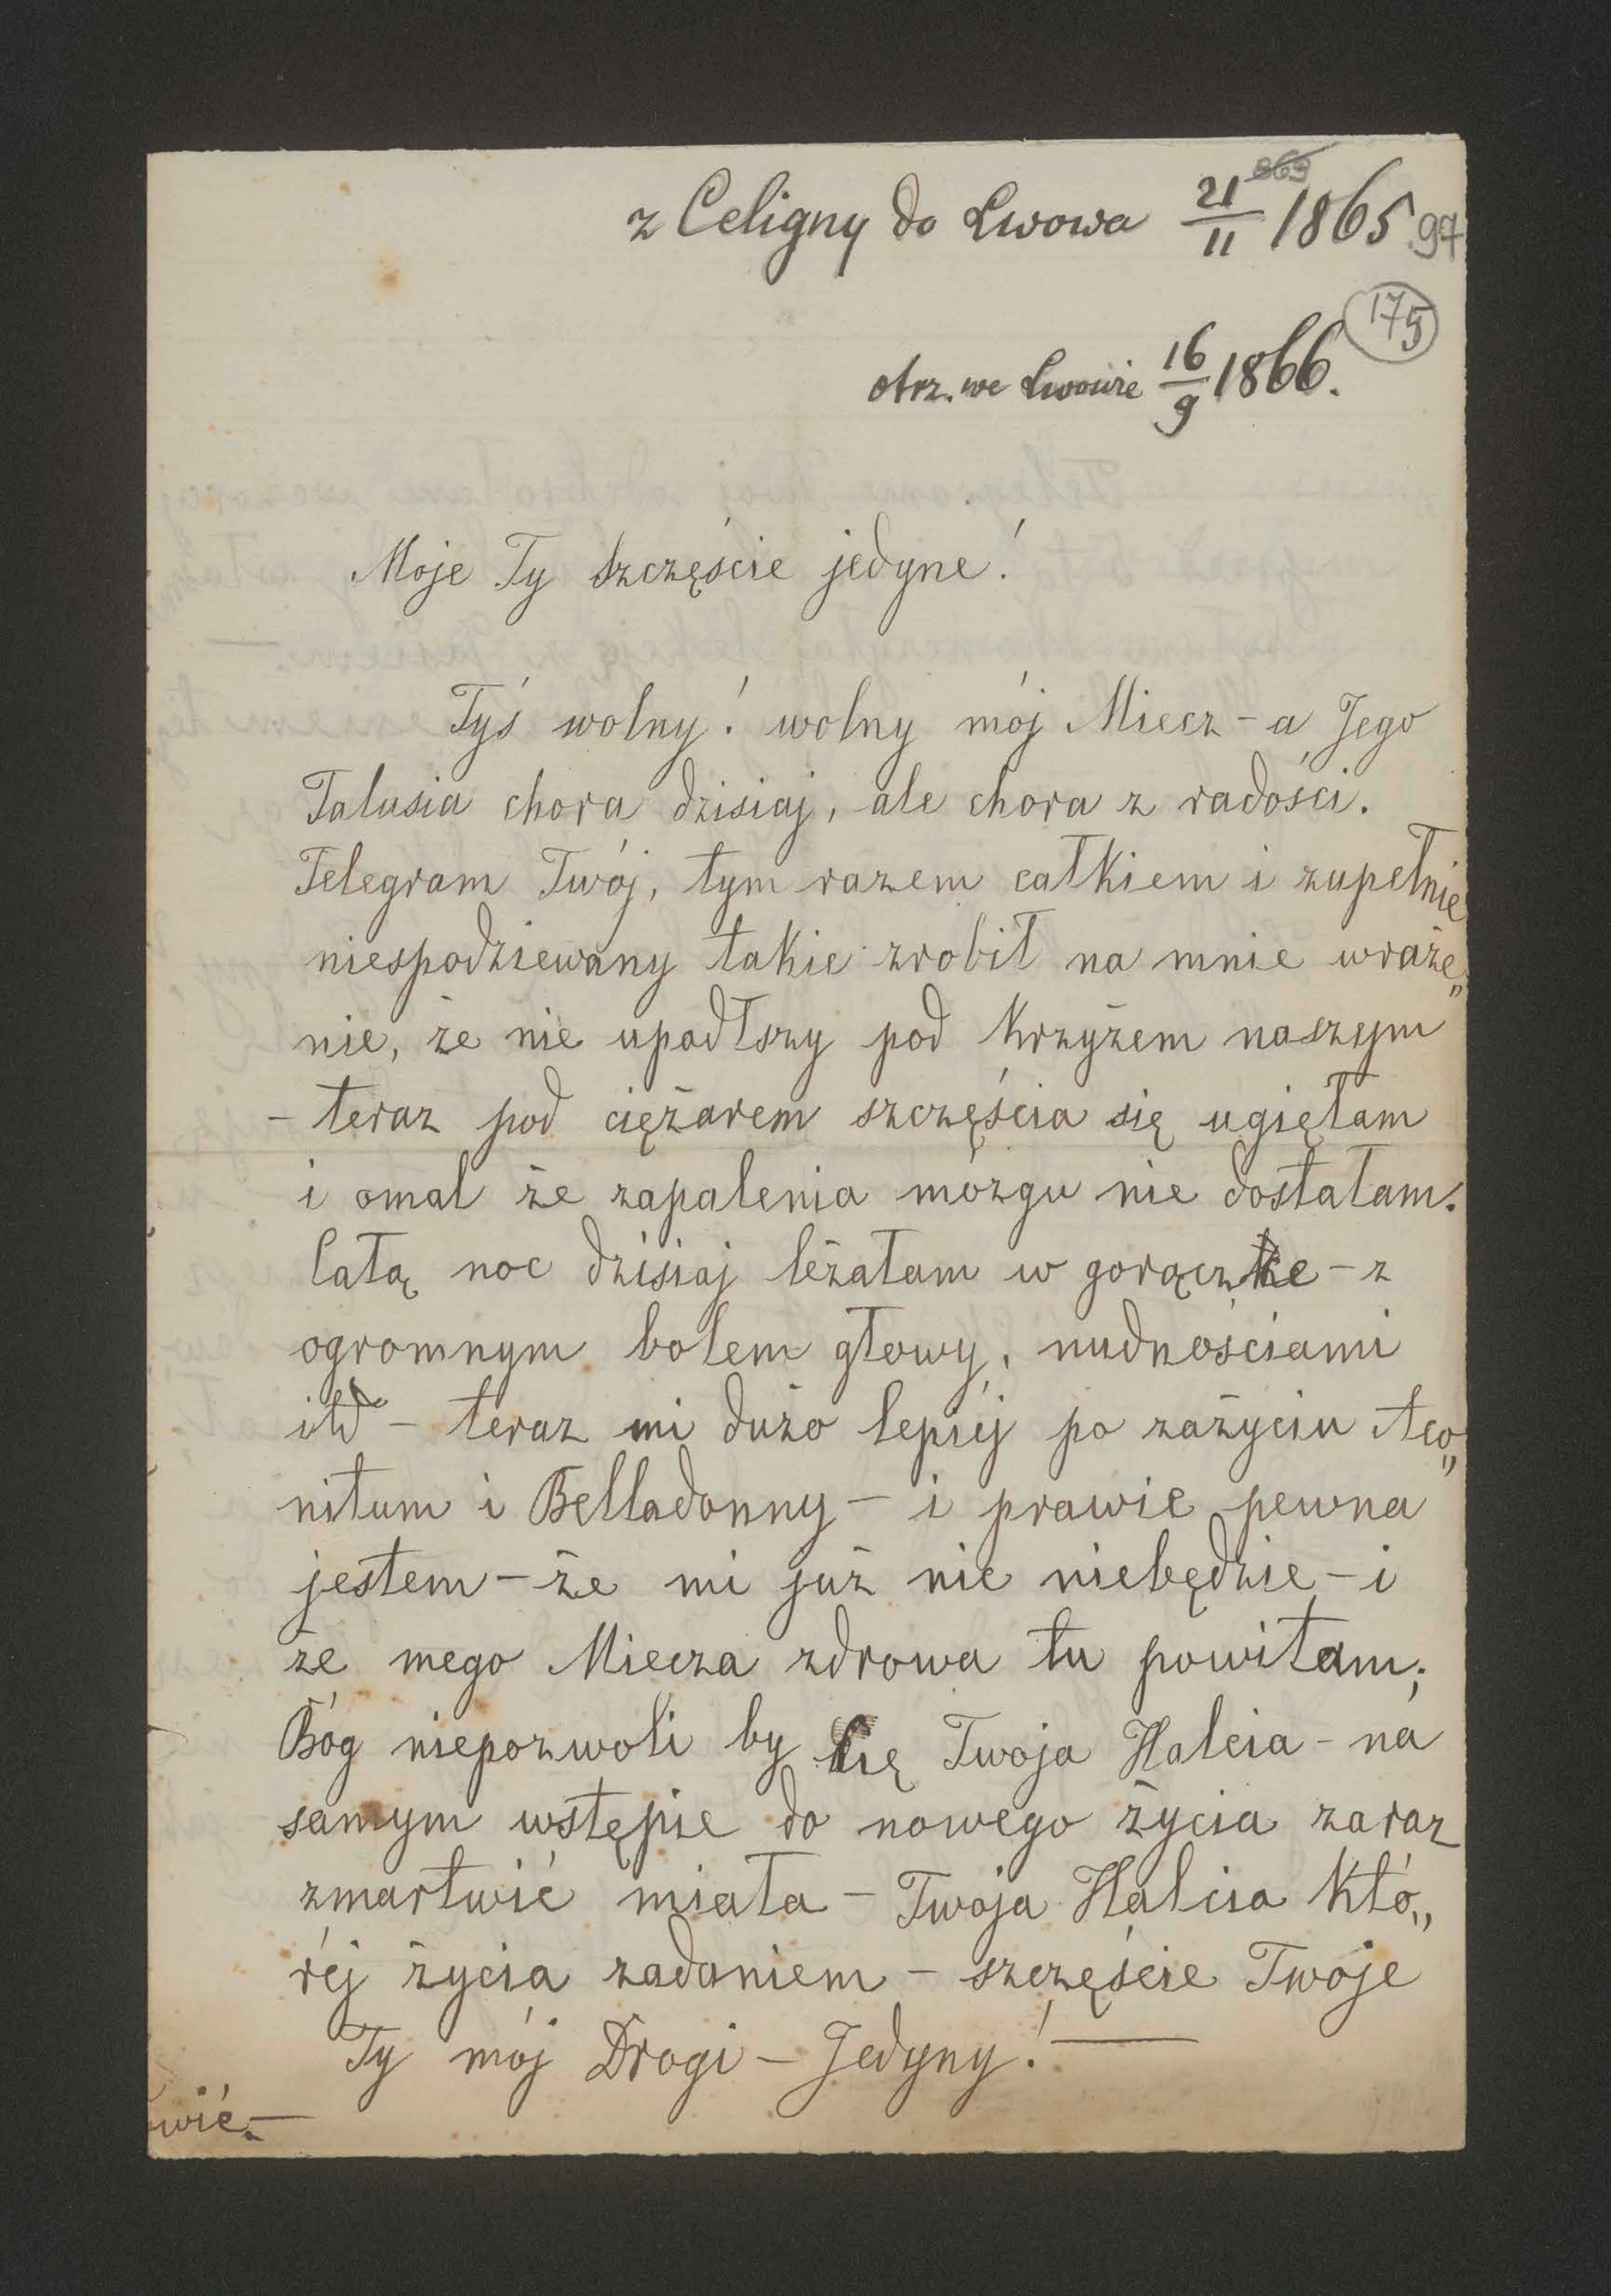 863
z Celigny do Lwowa 21/11 1865 97
175
otrz. we Lwowie 16/9 1866.
Moje Ty szczęście jedyne!
Tyś wolny! wolny mój Miecz - a Jego
Talusia chora dzisiaj, ale chora z radości.
Telegram Twój, tym razem całkiem i zupełnie
niespodziewany takie zrobił na mnie wraże„
nie, że nie upadłszy pod krzyżem naszym
- teraz pod ciężarem szczęścia się ugięłam
i omal że zapalenia mózgu nie dostałam.
Całą noc dzisiaj leżałam w gorączke - z
ogromnym bolem głowy, nudnościami
itd - teraz mi dużo lepiéj po zażyciu Aco„
nitum i Belladonny - i prawie pewna
jestem - że mi już nic niebędzie - i
że mego Miecza zdrowa tu powitam;
Bóg niepozwoli by Cię Twoja Halcia - na
samym wstępie do nowego życia zaraz
zmartwić miała - Twoja Halcia któ„
réj życia zadaniem - szczęście Twoje
Ty mój Drogi - Jedyny! —
wić. —